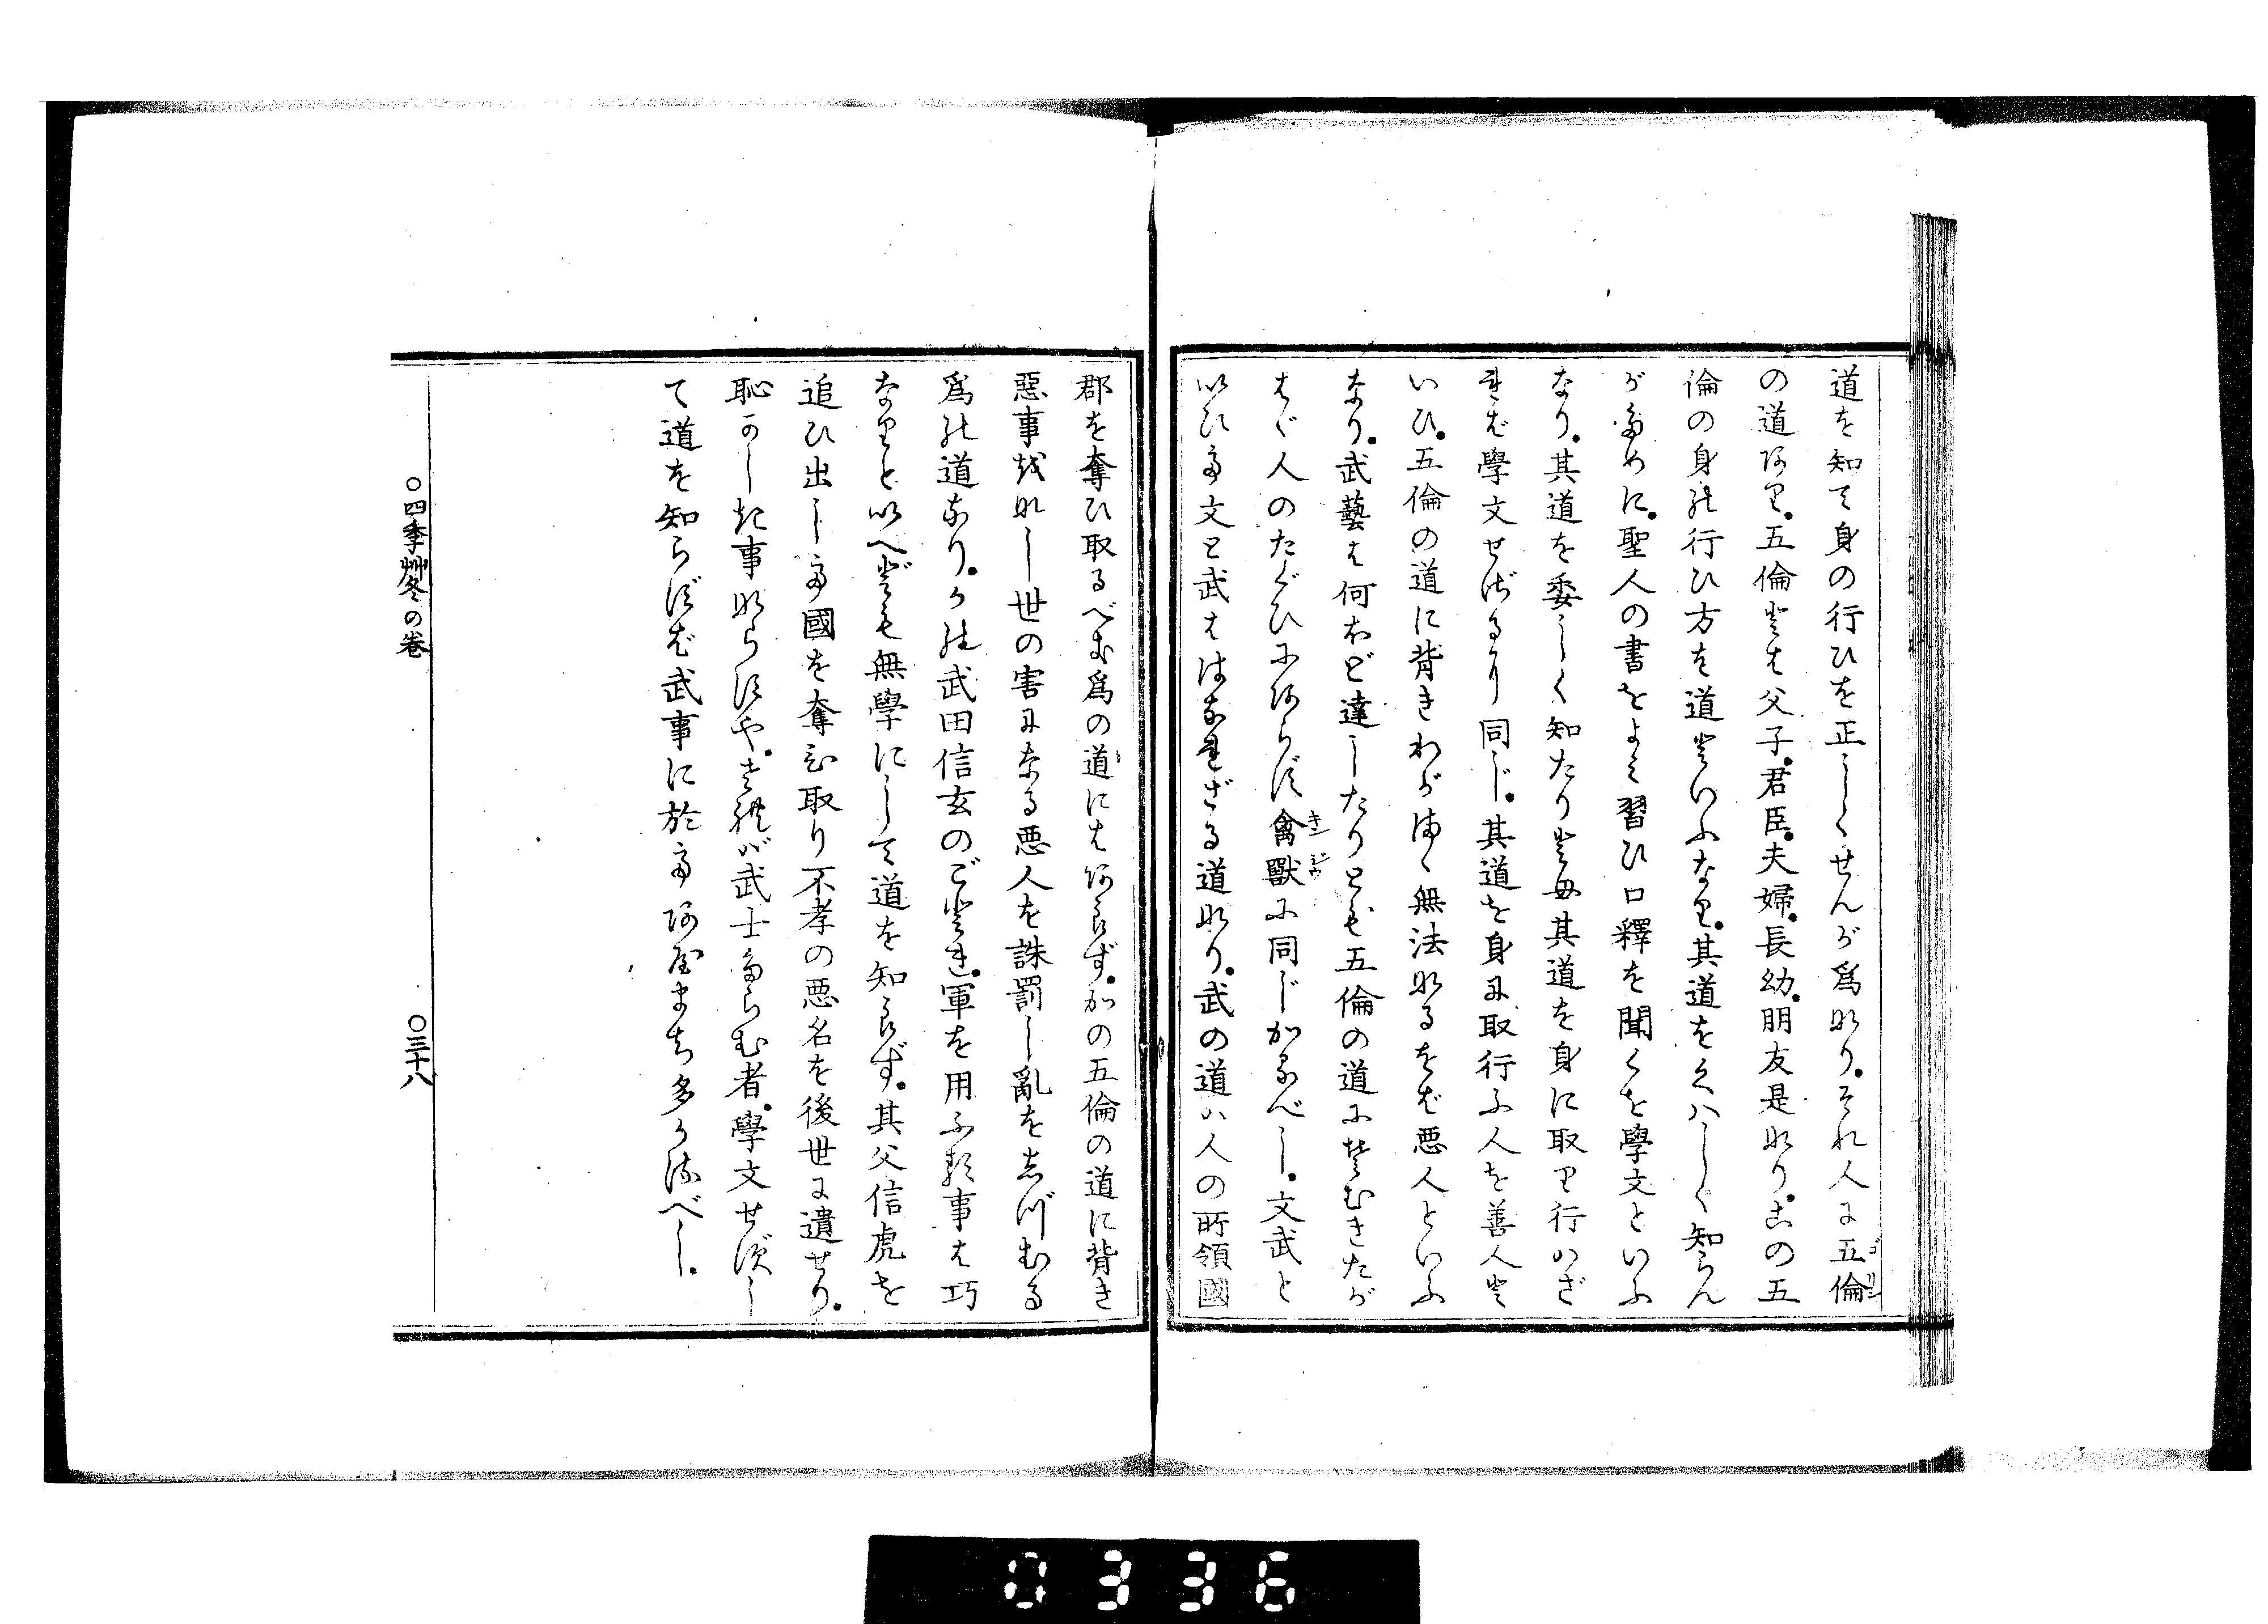 道を知て身の行ひを正しくせんが爲なり。それ人に五倫
ゴリン
の道あり。五倫とは父子。君臣。夫婦。長幼。朋友是なり。この五
倫の身の行ひ方を道といふなり。其道をくはしく知らん
がために。聖人の書をよみ習ひ口釋を聞くを學文といふ
なり。其道を委しく知たりとも其道を身に取り行はざ
れば學文せざるに同じ。其道を身に取行ふ人を善人と
いひ。五倫の道に背きわがまゝ無法なるをば悪人といふ
なり。武藝は何ほど達したりとも五倫の道にそむきたが
はゞ人のたぐひにあらず禽獸に同じかるべし。文武と
キンジウ
いひて文と武ははなれざる道なり。武の道ハ人の所領國
郡を奪ひ取るべき爲の道にはあらず。かの五倫の道に背き
惡事をなし世の害になる悪人を誅罰し亂をしづむる
爲の道なり。かの武田信玄のごとき。軍を用ふる事は巧
なりといへども無學にして道を知らず。其父信虎を
追ひ出して國を奪ひ取り不孝の悪名を後世に遺せり。
恥かしき事ならずや。されば武士たらむ者。學文せずし
て道を知らずば武事に於てあやまち多かるべし。
○四季艸冬の巻
○三十八
0336